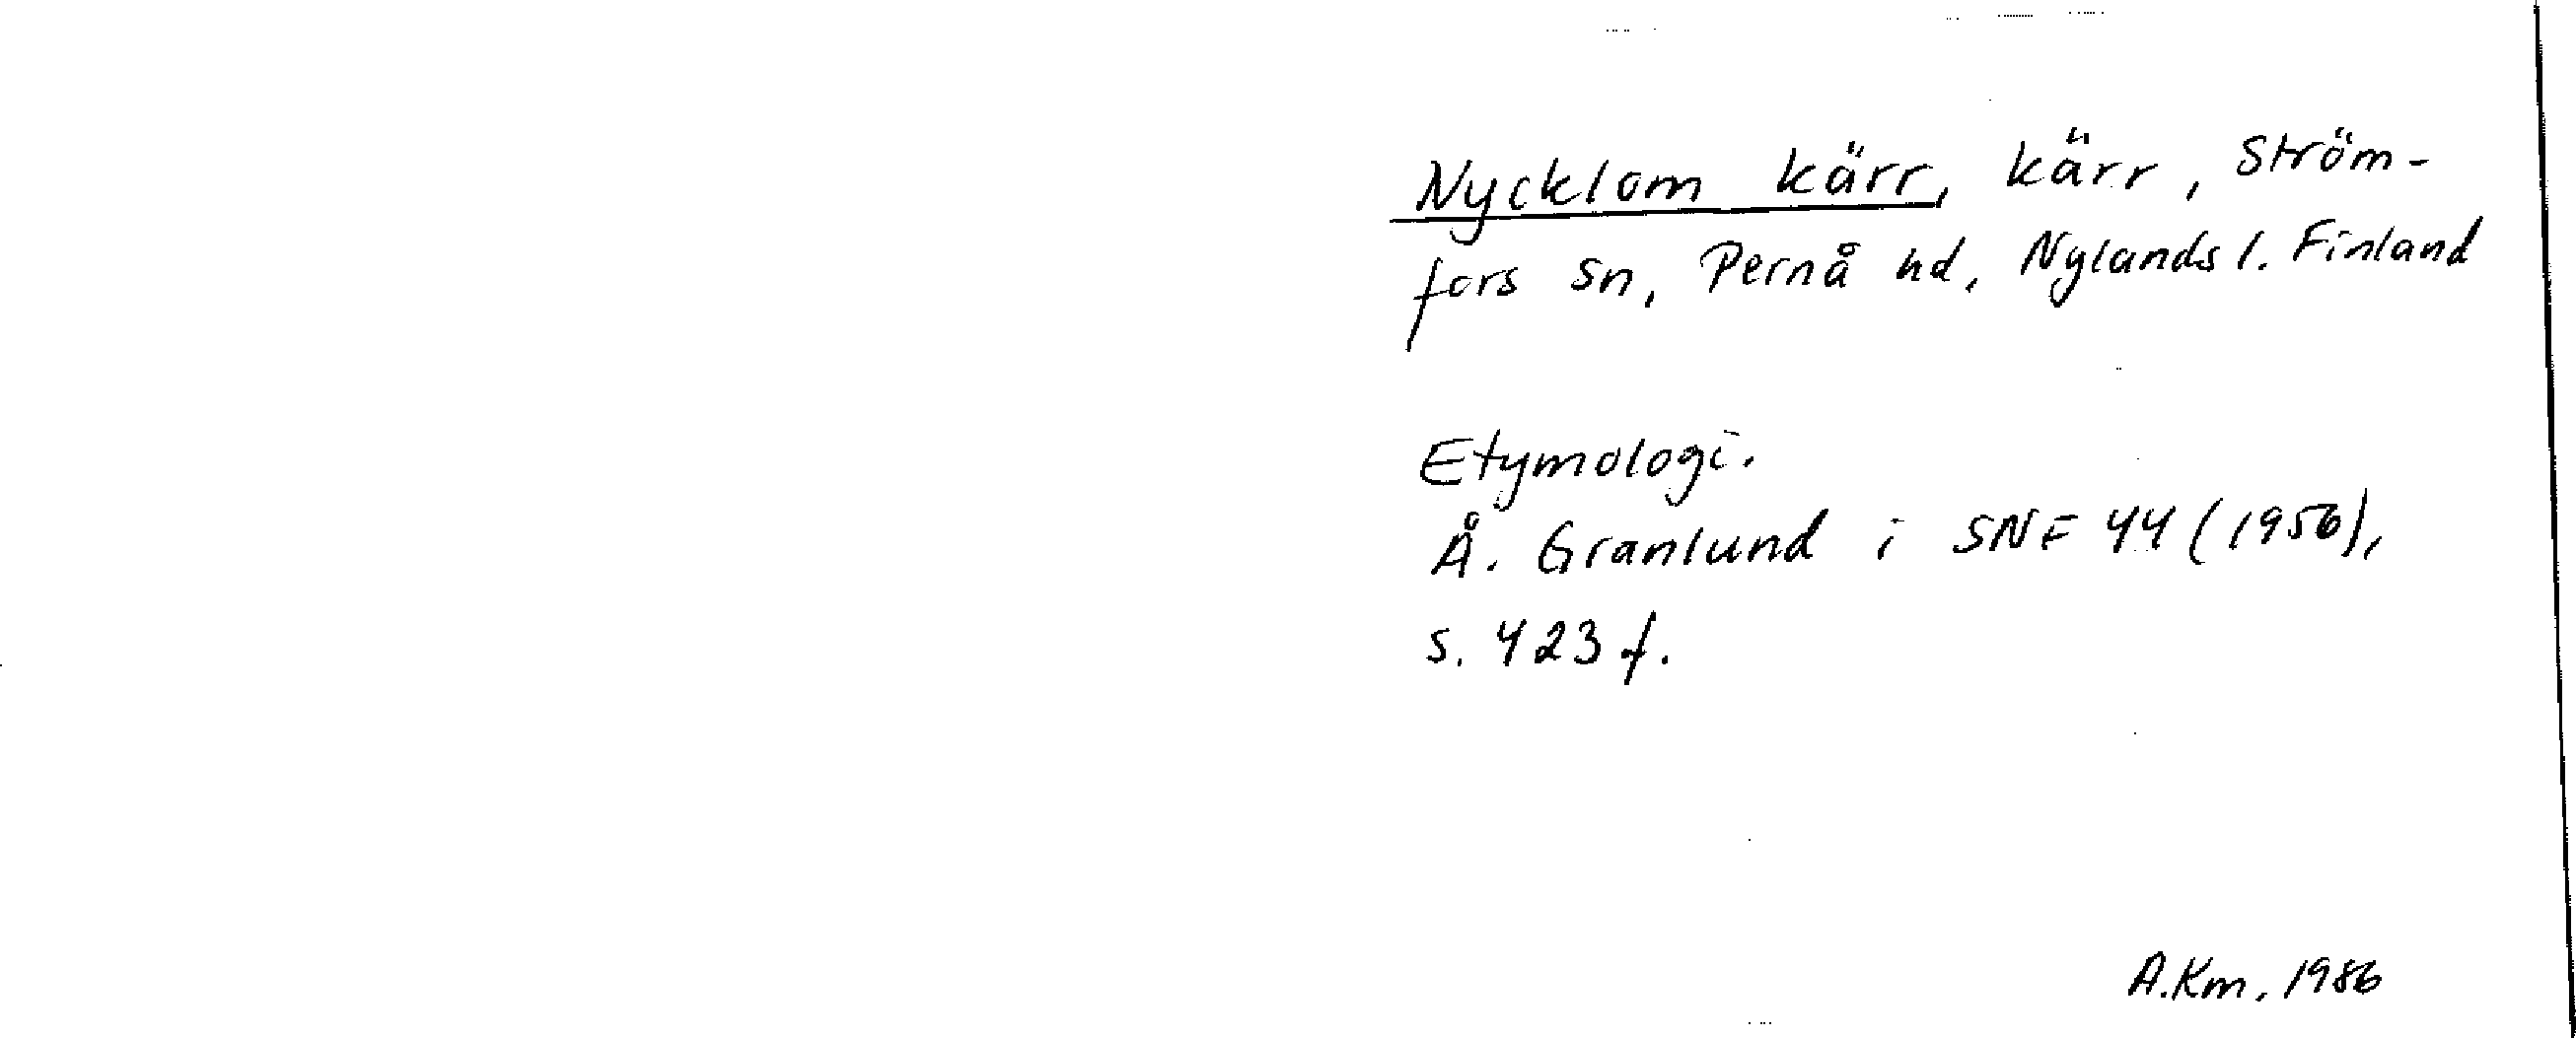 Nycklom kärr, kärr, Ström-
fors sn, Pernå hd, Nylands l. Finland
Etymologi.
Å. Granlund i SNF 44 (1956),
s. 423 f.
A.Km. 1986